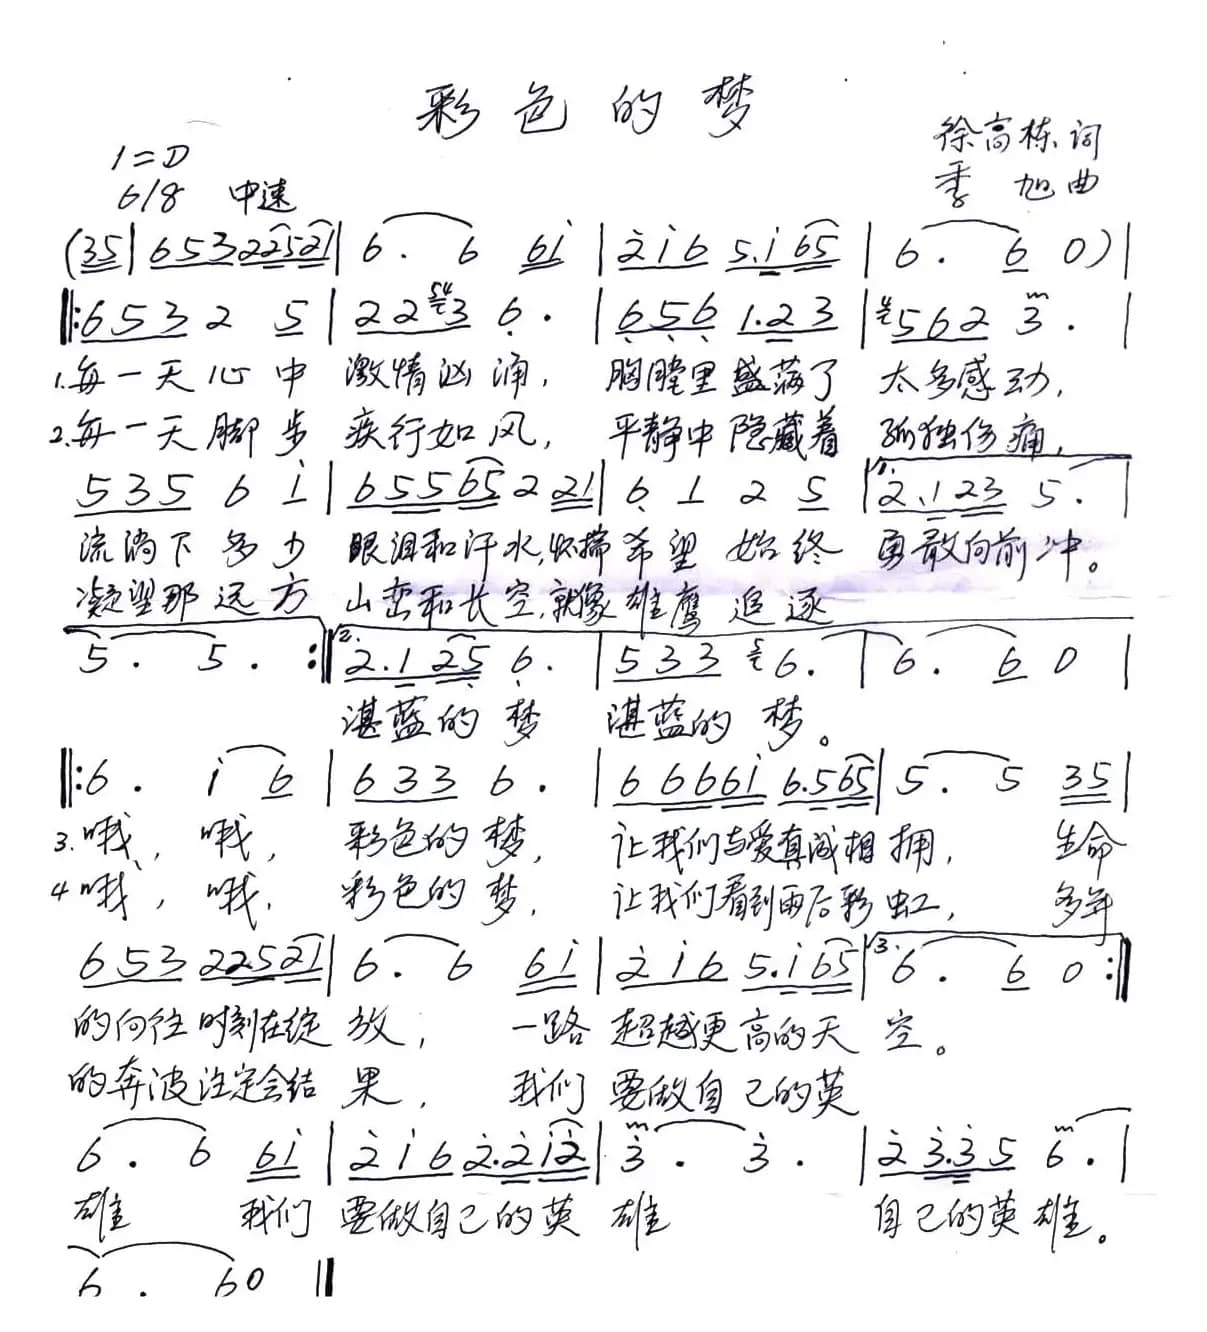 彩色的梦
1=D
徐高栋词
6/8 中速
季 旭曲
(35| 65322521| 6. 6 61| 2165.165| 6. 6 0)|
‖:6532 5| 22 54 3 6.| 656 1.23| 4 562 3.|
1.每一天心中 激情汹涌, 胸膛里盛满了 太多感动,
2.每一天脚步 疾行如风, 平静中隐藏着 孤独伤痛,
535 6 1| 65565221| 6 1 2 5| 1. 2.123 5.|
流淌下多少 眼泪和汗水,怀揣希望 始终 勇敢向前冲。
凝望那远方 山峦和长空,就像雄鹰 追逐
5. 5. :‖ 2. 2.125 6.| 533 5 6.| 6. 6 0|
湛蓝的梦 湛蓝的 梦。
‖:6. 1 6| 633 6.| 666616.565| 5. 5 35|
3.哦, 哦, 彩色的梦, 让我们与爱真诚相拥, 生命
4哦, 哦, 彩色的梦, 让我们看到雨后彩虹, 多年
653 22521| 6. 6 61| 2165.165| 3. 6. 6 0:‖
的向往时刻在绽 放, 一路 超越更高的天 空。
的奔波注定会结 果, 我们 要做自己的英
6. 6 61| 2162.212| 3. 3.| 23.35 6.|
雄 我们 要做自己的英 雄 自己的英雄。
6. 60 ‖